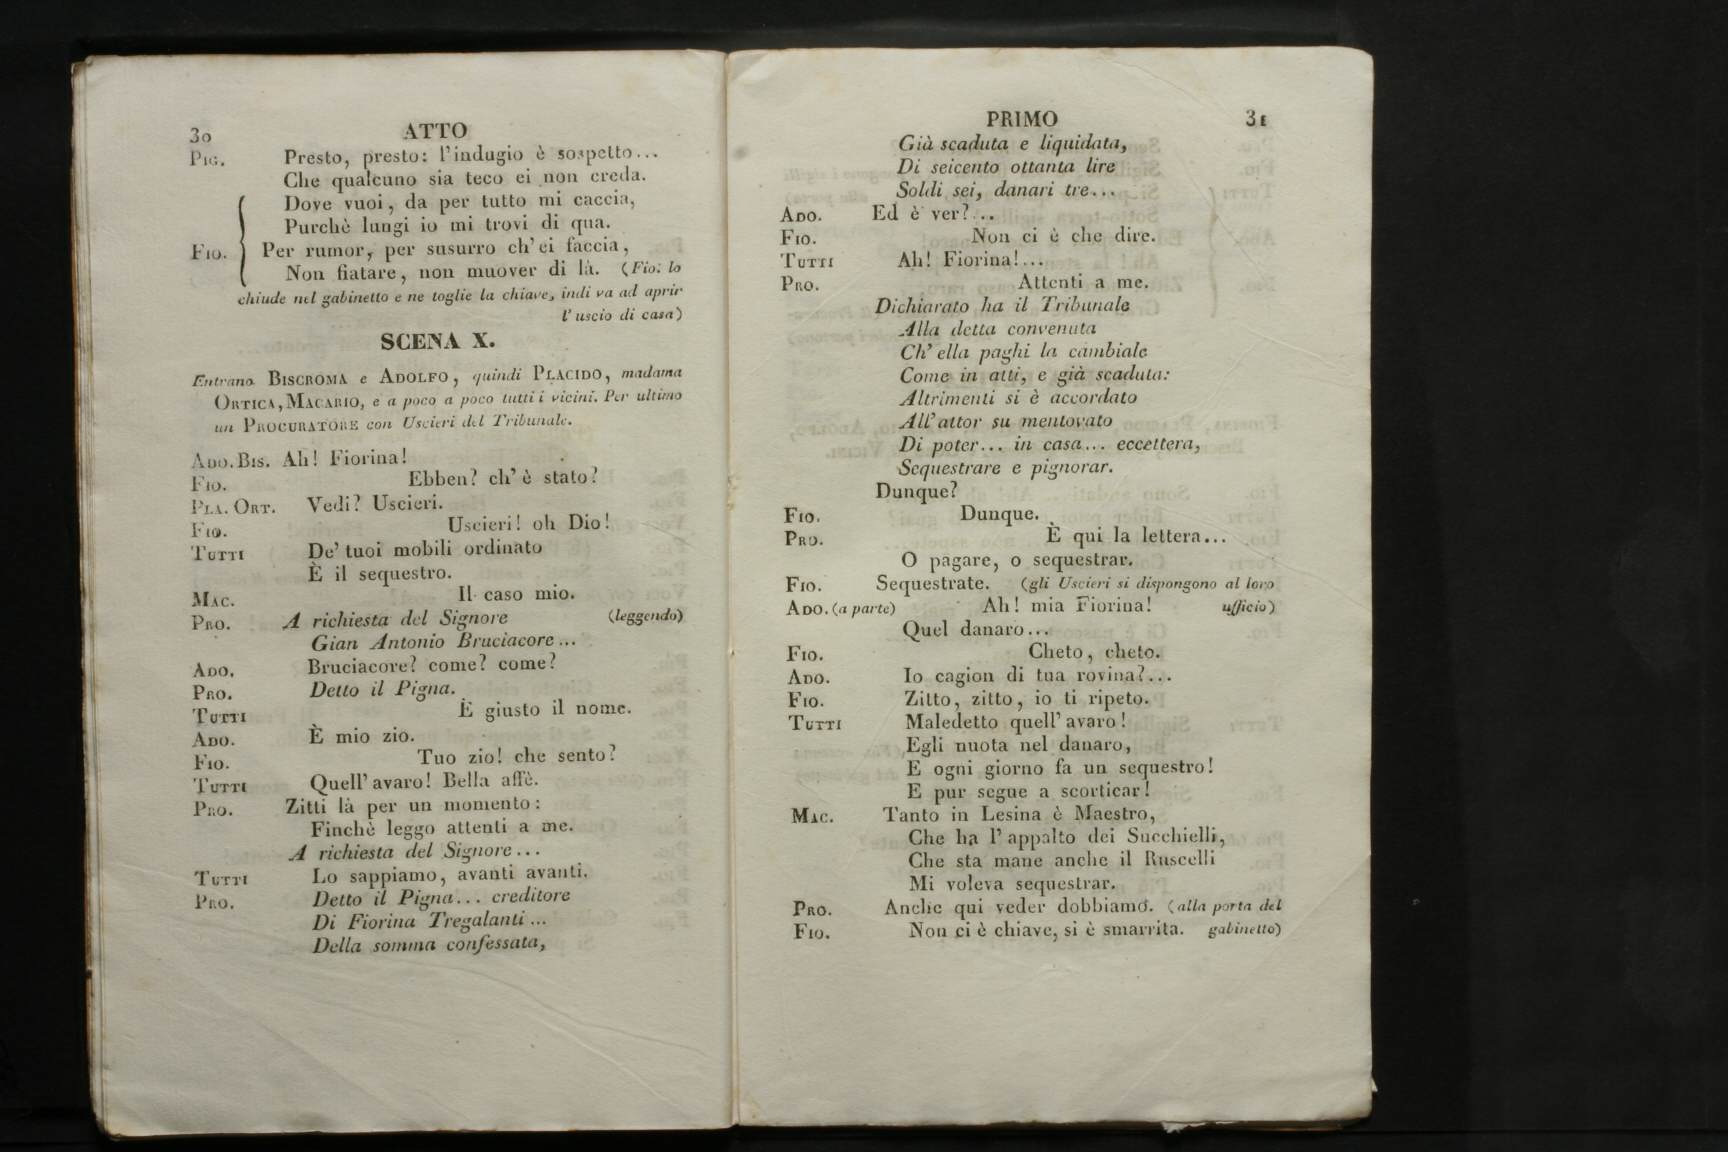 30 ATTO
PIG. Presto, presto: l'indugio è sospetto...
Che qualcuno sia teco ei non creda.
Dove vuoi, da per tutto mi caccia,
Purchè lungi io mi trovi di qua.
FIO. Per rumor, per susurro ch'ei faccia,
Non fiatare, non muover di là. (Fio: lo
chiude nel gabinetto e ne toglie la chiave, indi va ad aprir
l'uscio di casa)
SCENA X.
Entrano BISCROMA e ADOLFO, quindi PLACIDO, madama
ORTICA, MACARIO, e a poco a poco tutti i vicini. Per ultimo
un PROCURATORE con Uscieri del Tribunale.
ADO. BIS. Ah! Fiorina!
FIO. Ebben? ch'è stato?
PLA. ORT. Vedi? Uscieri.
FIO. Uscieri! oh Dio!
TUTTI De' tuoi mobili ordinato
È il sequestro.
MAC. Il caso mio.
PRO. A richiesta del Signore (leggendo)
Gian Antonio Bruciacore...
ADO. Bruciacore? come? come?
PRO. Detto il Pigna.
TUTTI È giusto il nome.
ADO. È mio zio.
FIO. Tuo zio! che sento?
TUTTI Quell'avaro! Bella affè.
PRO. Zitti là per un momento:
Finchè leggo attenti a me.
A richiesta del Signore...
TUTTI Lo sappiamo, avanti avanti.
PRO. Detto il Pigna... creditore
Di Fiorina Tregalanti...
Della somma confessata,
PRIMO 31
Già scaduta e liquidata,
Di seicento ottanta lire
Soldi sei, danari tre...
ADO. Ed è ver?...
FIO. Non ci è che dire.
TUTTI Ah! Fiorina!...
PRO. Attenti a me.
Dichiarato ha il Tribunale
Alla detta convenuta
Ch'ella paghi la cambiale
Come in atti, e già scaduta:
Altrimenti si è accordato
All'attor su mentovato
Di poter... in casa... eccettera,
Sequestrare e pignorar.
Dunque?
FIO. Dunque.
PRO. È qui la lettera...
O pagare, o sequestrar.
FIO. Sequestrate. (gli Uscieri si dispongono al loro
ADO. (a parte) Ah! mia Fiorina! ufficio)
Quel danaro...
FIO. Cheto, cheto.
ADO. Io cagion di tua rovina?...
FIO. Zitto, zitto, io ti ripeto.
TUTTI Maledetto quell'avaro!
Egli nuota nel danaro,
E ogni giorno fa un sequestro!
E pur segue a scorticar!
MAC. Tanto in Lesina è Maestro,
Che ha l'appalto dei Succhielli,
Che sta mane anche il Ruscelli
Mi voleva sequestrar.
PRO. Anche qui veder dobbiamo. (alla porta del
FIO. Non ci è chiave, si è smarrita. gabinetto)